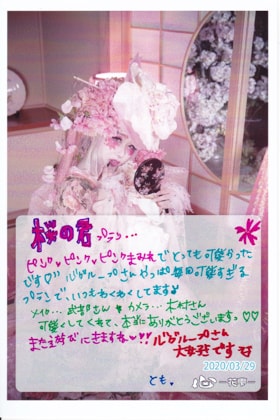 桜の君 プラン…
ピンク♥ピンク♥ピンクまみれでとっても可愛かった
です♡♡ 心グループさんやっぱ毎回可愛すぎる
プランで、いつもわくわくしてます
メイク…武部さん カメラ…木村さん
可愛くしてくれて、本当にありがとうございますっ♡♡
また遊びにきますね♥!! 心グループさん
大好きです
2020/03/29
とも。
心 一花雫一